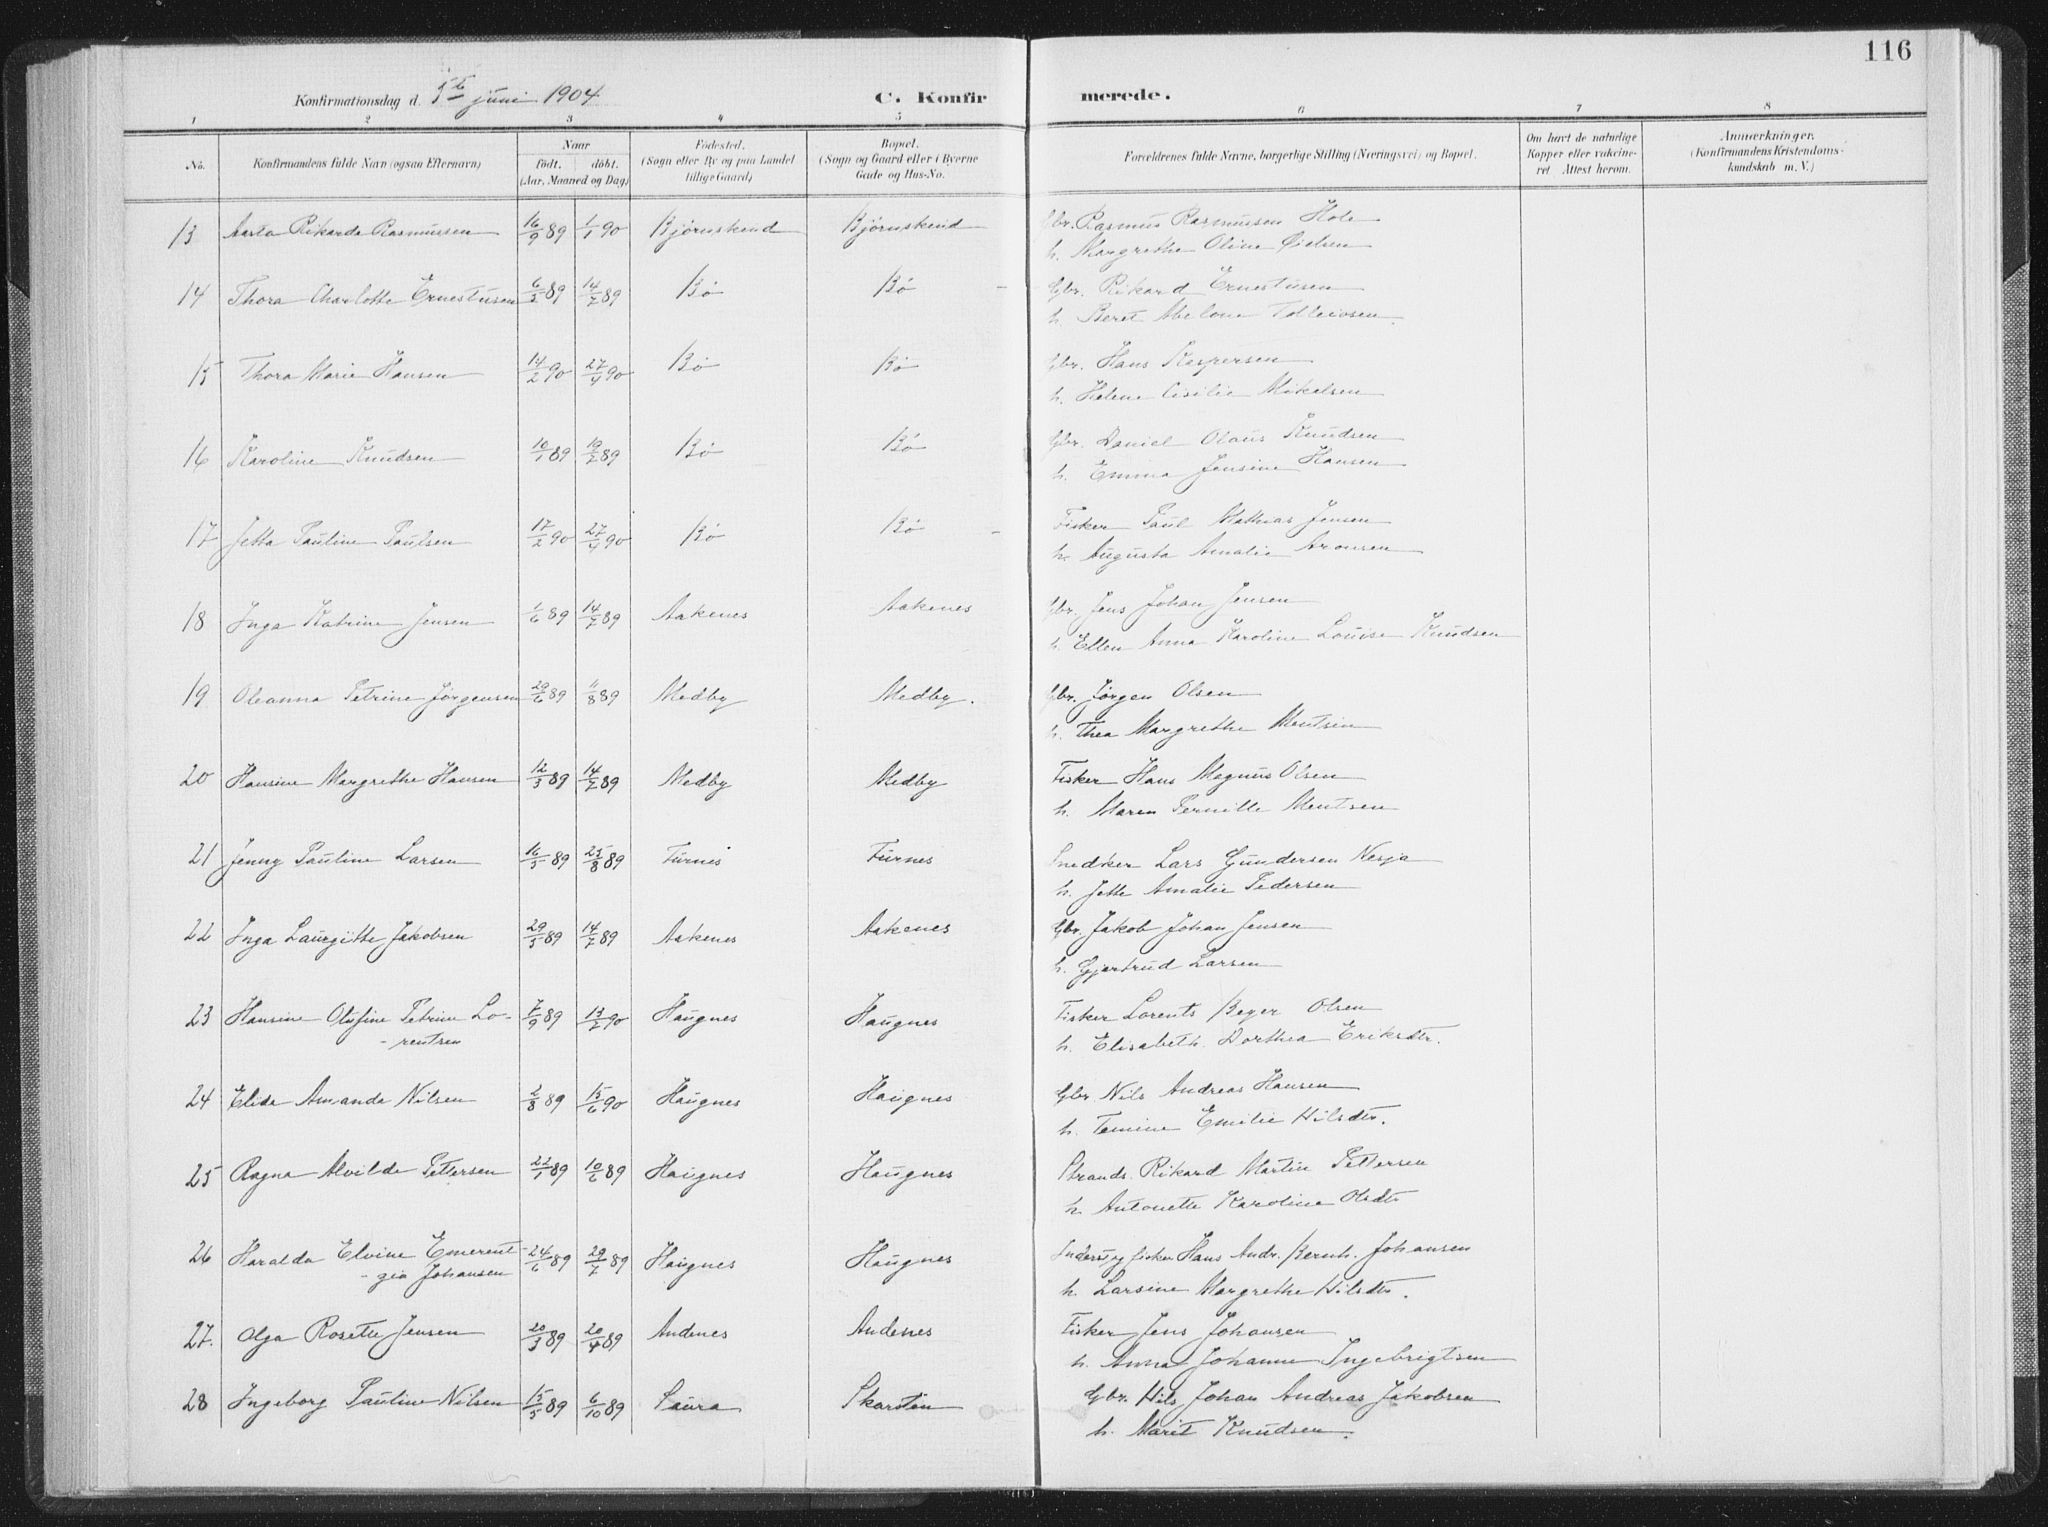 116
Konfirmationsdag d. 5te juni 1904
C. Konfirmerede.
1 2 3 4 5 6 7 8
No. Konfirmandens fulde Navn (ogsaa Efternavn) Naar født. døbt. (Aar, Maaned og Dag) Fødested. (Sogn eller By og paa Landet tillige Gaard) Bopæl. (Sogn og Gaard eller i Byerne Gade og Hus-No. Forældrenes fulde Navne, borgerlige Stilling (Næringsvei) og Bopæl. Om havt de naturlige Kopper eller vakcineret. Attest herom. Anmærkninger. (Konfirmandens Kristendomskundskab m. V.)
13 Aasta Rikarda Rasmussen 16/9 89 1/1 90 Bjørnskind Bjørnskind Gbr. Rasmus Rasmussen Hole
h. Margrethe Oline
14 Thora Charlotte Ernestusen 6/5 89 14/7 89 Bø Bø Gbr. Rikard Ernestusen
h. Beret Abelone Tolleivsen
15 Thora Marie Hansen 14/2 90 27/4 90 Bø Bø Gbr. Hans Kaspersen
h. Helene Cisilie Mikelsen
16 Karoline Knudsen 10/1 89 10/2 89 Bø Bø Gbr. Daniel Olaus Knudsen
h. Emma Jensine Hansen
17 Jetta Pauline Paulsen 17/2 90 27/4 90 Bø Bø Fisker Paul Mathias Jensen
h. Augusta Amalie Aronsen
18 Inga Katrine Jensen 1/6 89 14/7 89 Aakenes Aakenes Gbr. Jens Johan Jensen
h. Ellen Anna Karoline Louise Knudsen
19 Oleanna Petrine Jørgensen 29/6 89 11/8 89 Medby Medby. Gbr. Jørgen Olsen
h. Thea Margrethe Mentsen
20 Hansine Margrethe Hansen 12/3 89 14/7 89 Medby Medby Fisker Hans Magnus Olsen
h. Maren Pernille Mentsen
21 Jenny Pauline Larsen 16/5 89 25/8 89 Furnes Furnes Snedker Lars Gundersen Nesja
h. Jette Amalie Pedersen
22 Inga Laurgitte Jakobsen 29/5 89 14/7 89 Aakenes Aakenes Gbr. Jakob Johan Jensen
h. Gjertrud Larsen
23 Hansine Olufine Petrine Lo- 7/9 89 13/2 90 Haugnes Haugnes Fisker Lorents Beyer Olsen
-rentsen h. Elisabeth Dorthea Eriksdtr.
24 Elida Amanda Nilsen 2/8 89 15/6 90 Haugnes Haugnes Gbr. Nils Andreas Hansen
h. Temine Emilie Nilsdtr.
25 Ragna Alvilde Pettersen 22/1 89 10/6 89 Haugnes Haugnes Strands. Rikard Martin Pettersen
h. Antonette Karoline Olsdtr
26 Haralda Elvine Emerent- 24/6 89 29/7 89 Haugnes Haugnes Inders. og fisker Hans Andr. Bernh. Johansen
-zia Johansen h. Larsine Margrethe Nilsdtr.
27. Olga Rosette Jensen 20/3 89 20/4 89 Andenes Andenes Fisker Jens Johansen
h. Anna Johanne Ingebrigtsen
28 Ingeborg Pauline Nilsen 15/5 89 6/10 89 Saura Skarstein Gbr. Nils Johan Andreas Jakobsen
h. Marit Knudsen.